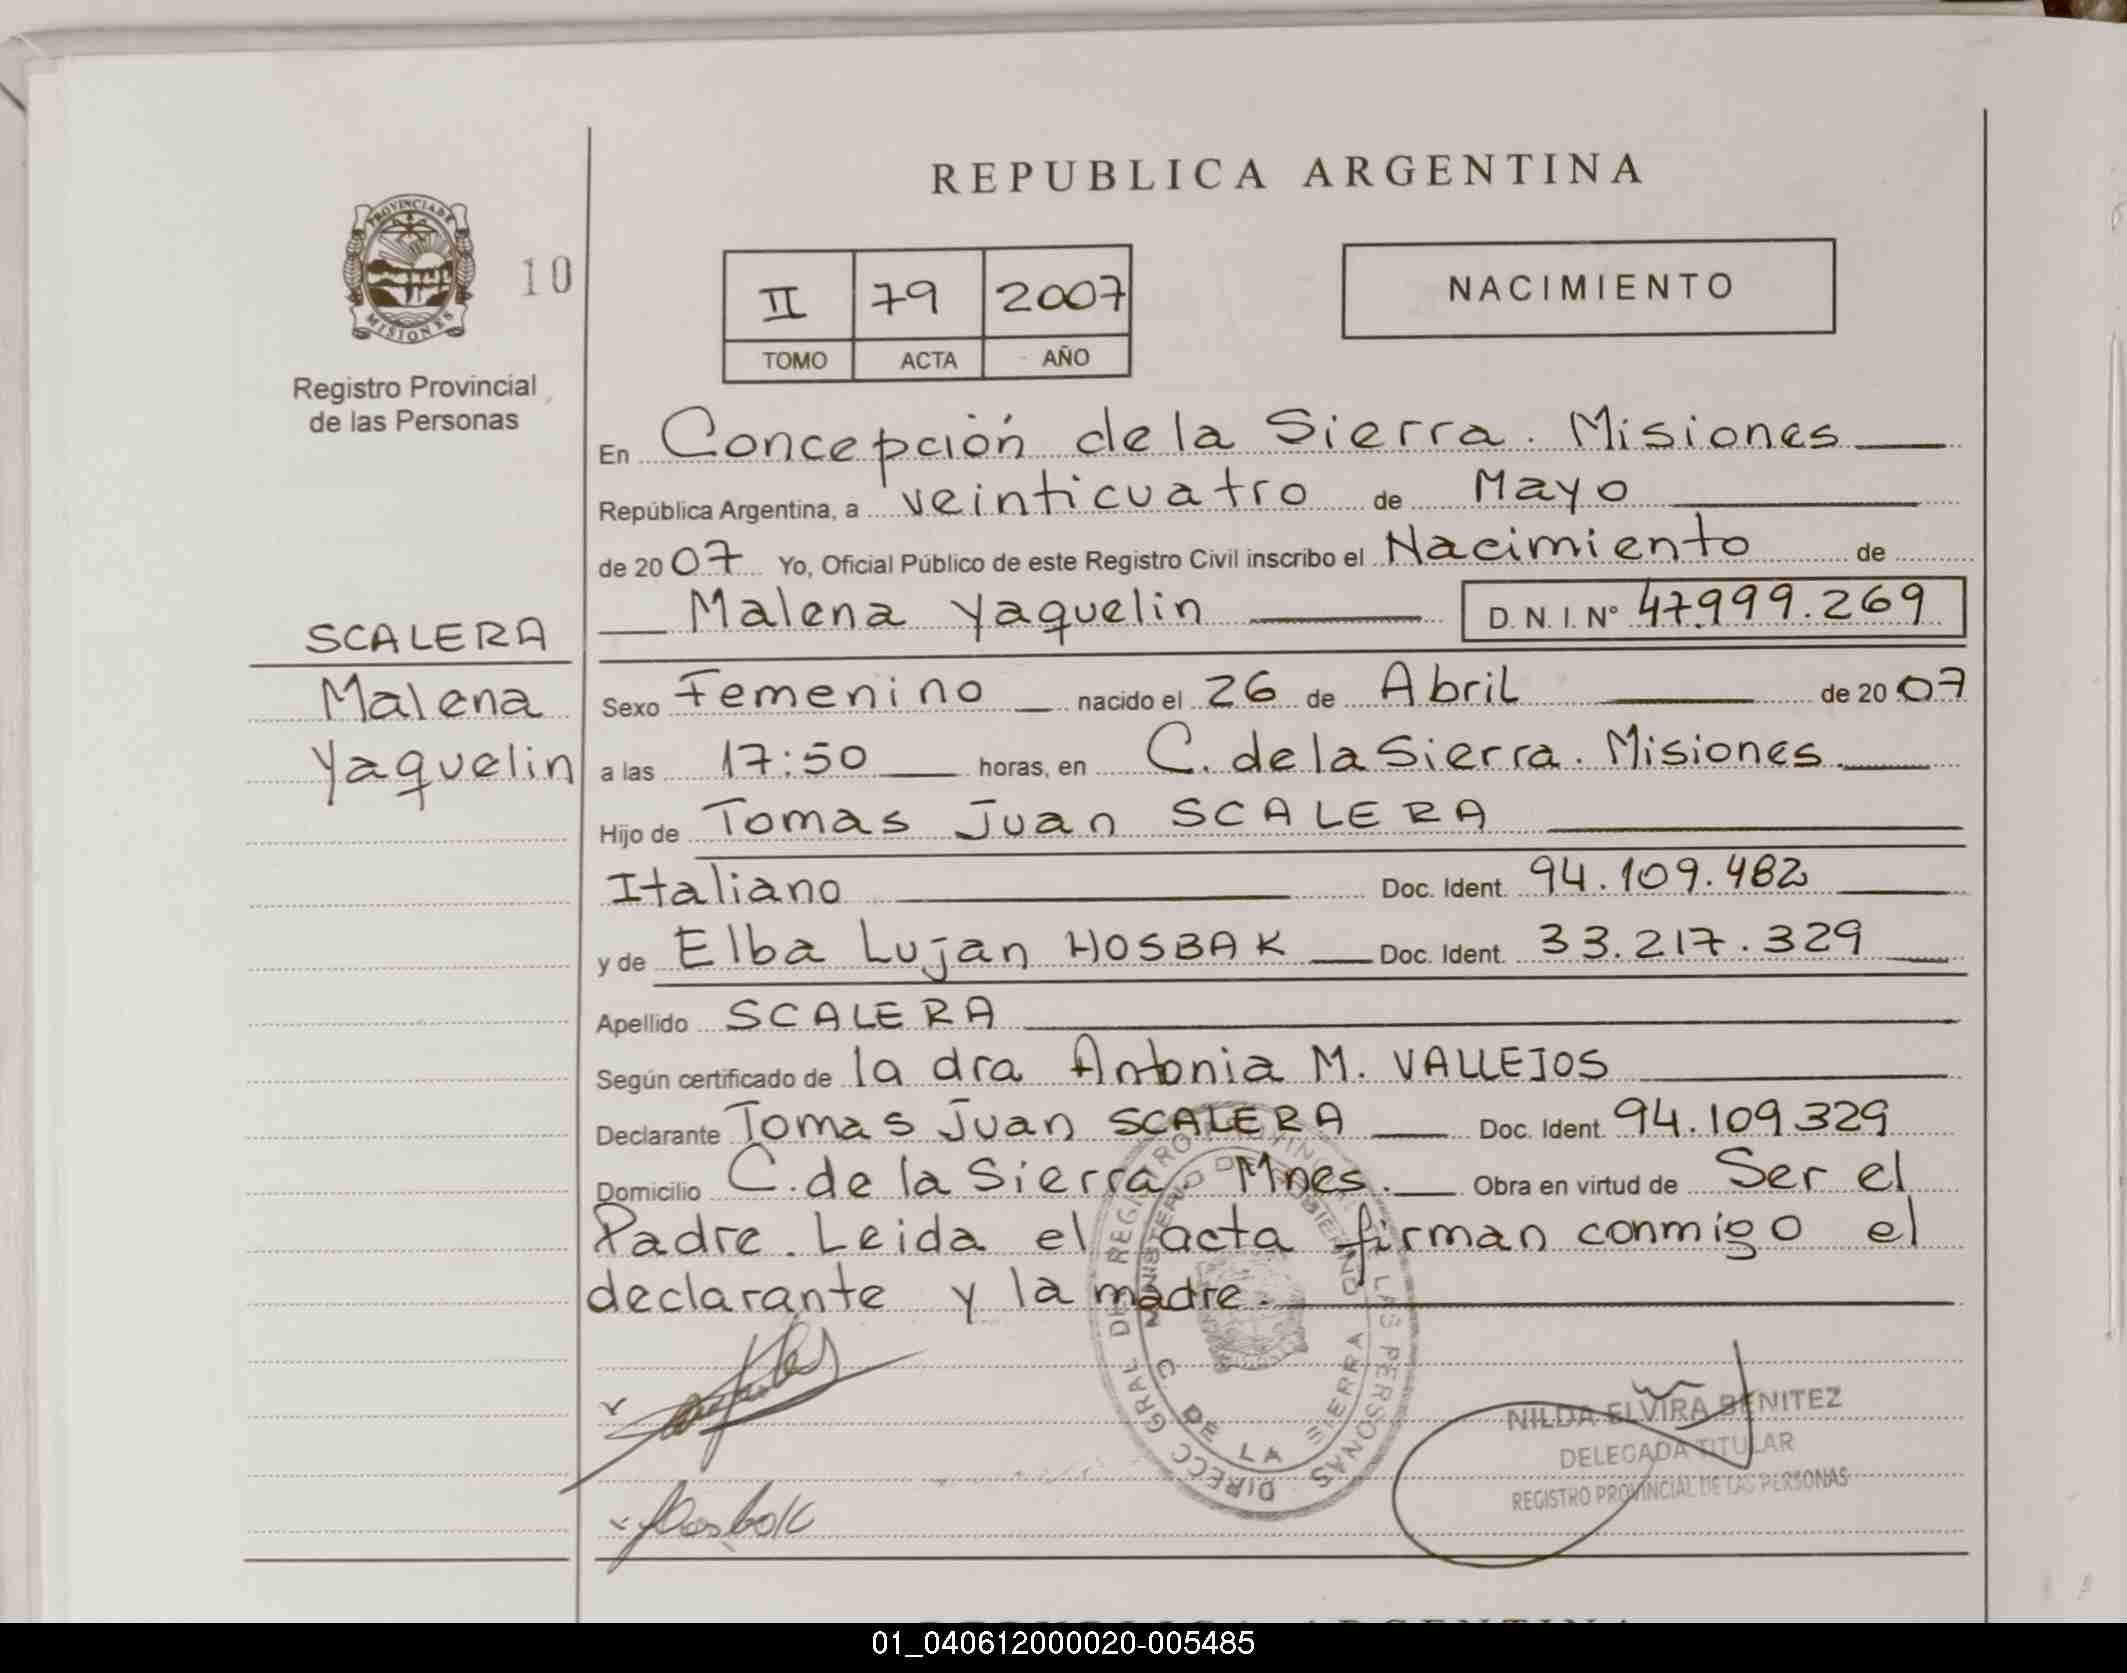 REPUBLICA ARGENTINA
PROVINCIA DE
MISIONES
10
Registro Provincial
de las Personas
II 79 2007
TOMO ACTA AÑO
NACIMIENTO
En Concepción de la Sierra. Misiones
República Argentina, a veinticuatro de Mayo
de 2007 Yo, Oficial Público de este Registro Civil inscribo el Nacimiento de
Malena Yaquelin D. N. I. N° 47.999.269
SCALERA
Malena
Yaquelin
Sexo Femenino nacido el 26 de Abril de 2007
a las 17:50 horas, en C. de la Sierra. Misiones.
Hijo de Tomas Juan SCALERA
Italiano Doc. Ident. 94.109.482
y de Elba Lujan HOSBAK Doc. Ident. 33.217.329
Apellido SCALERA
Según certificado de la dra Antonia M. VALLEJOS
Declarante Tomas Juan SCALERA Doc. Ident. 94.109.329
Domicilio C. de la Sierra. Mnes. Obra en virtud de Ser el
Padre. Leida el acta firman conmigo el
declarante y la madre.
DIRECC GRAL DE REGISTRO PROVINCIAL DE LAS PERSONAS
MINISTERIO DE GOBIERNO
C DE LA SIERRA
Hosbak
NILDA ELVIRA BENITEZ
DELEGADA TITULAR
REGISTRO PROVINCIAL DE LAS PERSONAS
01_040612000020-005485